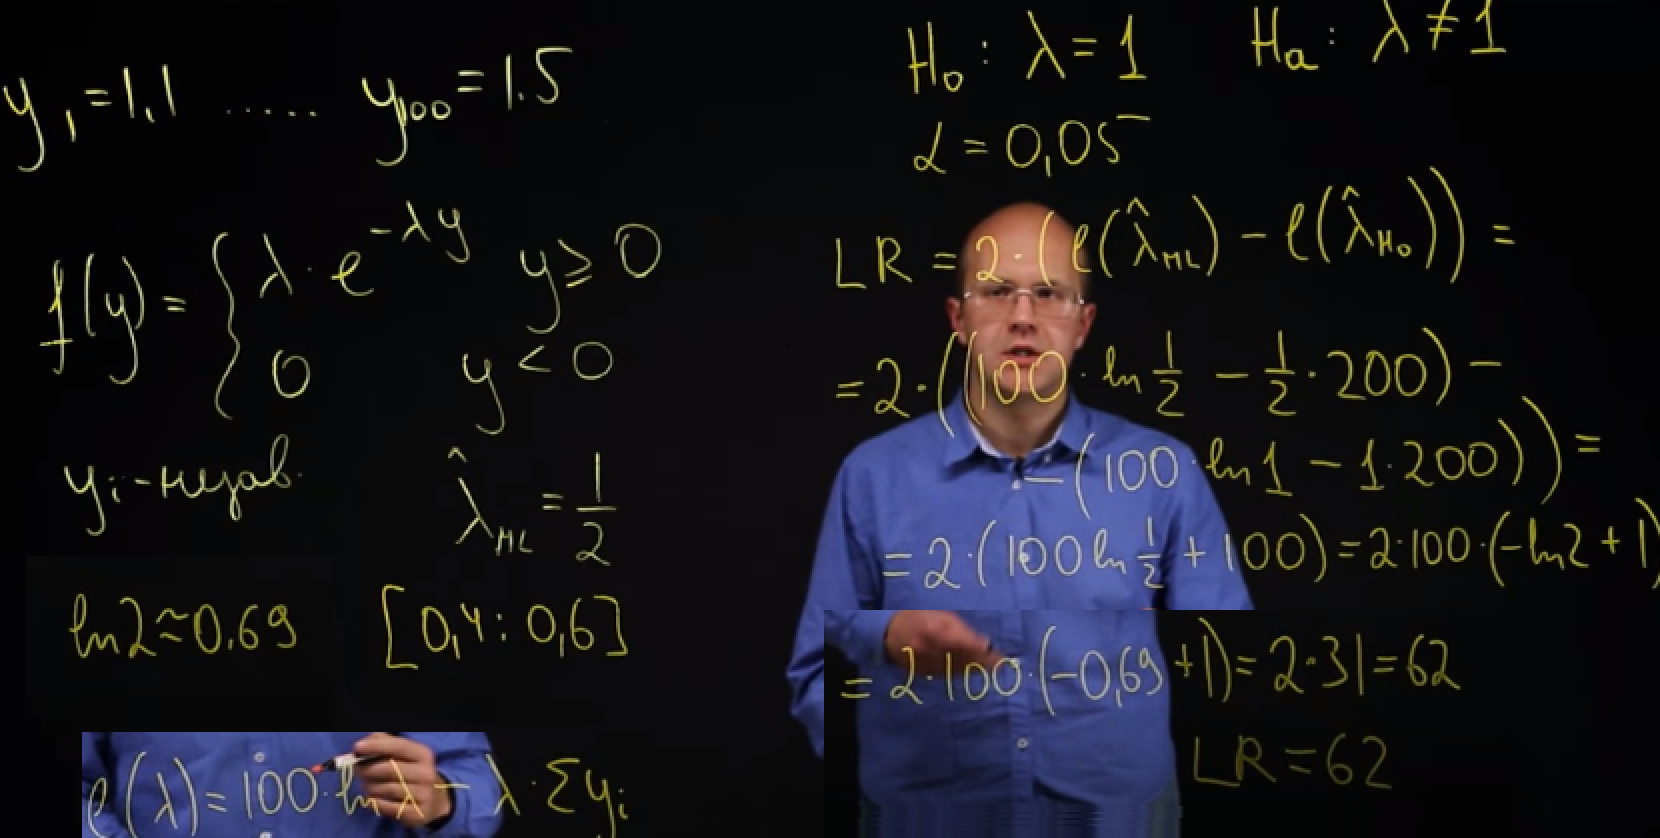 y₁ = 1.1 ..... y₁₀₀ = 1.5
f(y) = { λ · e^(-λy) y ⩾ 0
0 y < 0
yᵢ - незав.
λ̂_ML = 1/2
ln2 ≈ 0.69 [0,4 : 0,6]
ℓ(λ) = 100 · ln λ - λ · Σ yᵢ
H₀ : λ = 1 Hₐ : λ ≠ 1
α = 0,05
LR = 2 · (ℓ(λ̂_ML) - ℓ(λ̂_H₀)) =
= 2 · ((100 · ln 1/2 - 1/2 · 200) -
- (100 · ln 1 - 1 · 200)) =
= 2 · (100 ln 1/2 + 100) = 2 · 100 · (-ln2 + 1)
= 2 · 100 · (-0,69 + 1) = 2 · 31 = 62
LR = 62